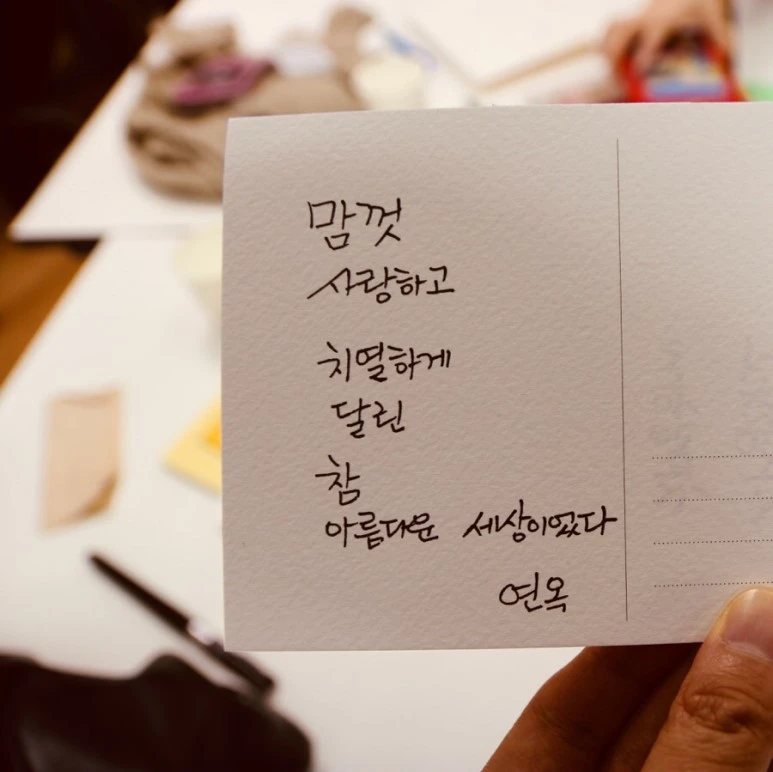 맘껏
사랑하고
치열하게
달린
참
아름다운 세상이었다
연옥